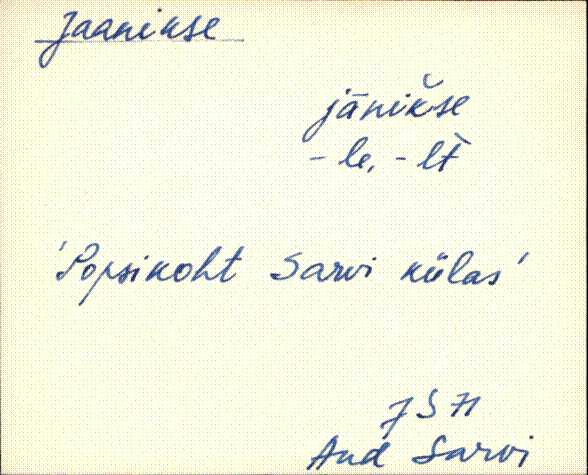 Jaanikse
jānikše
- le, - lt
'Popsikoht Sarvi külas'
JS 71
Aud Sarvi